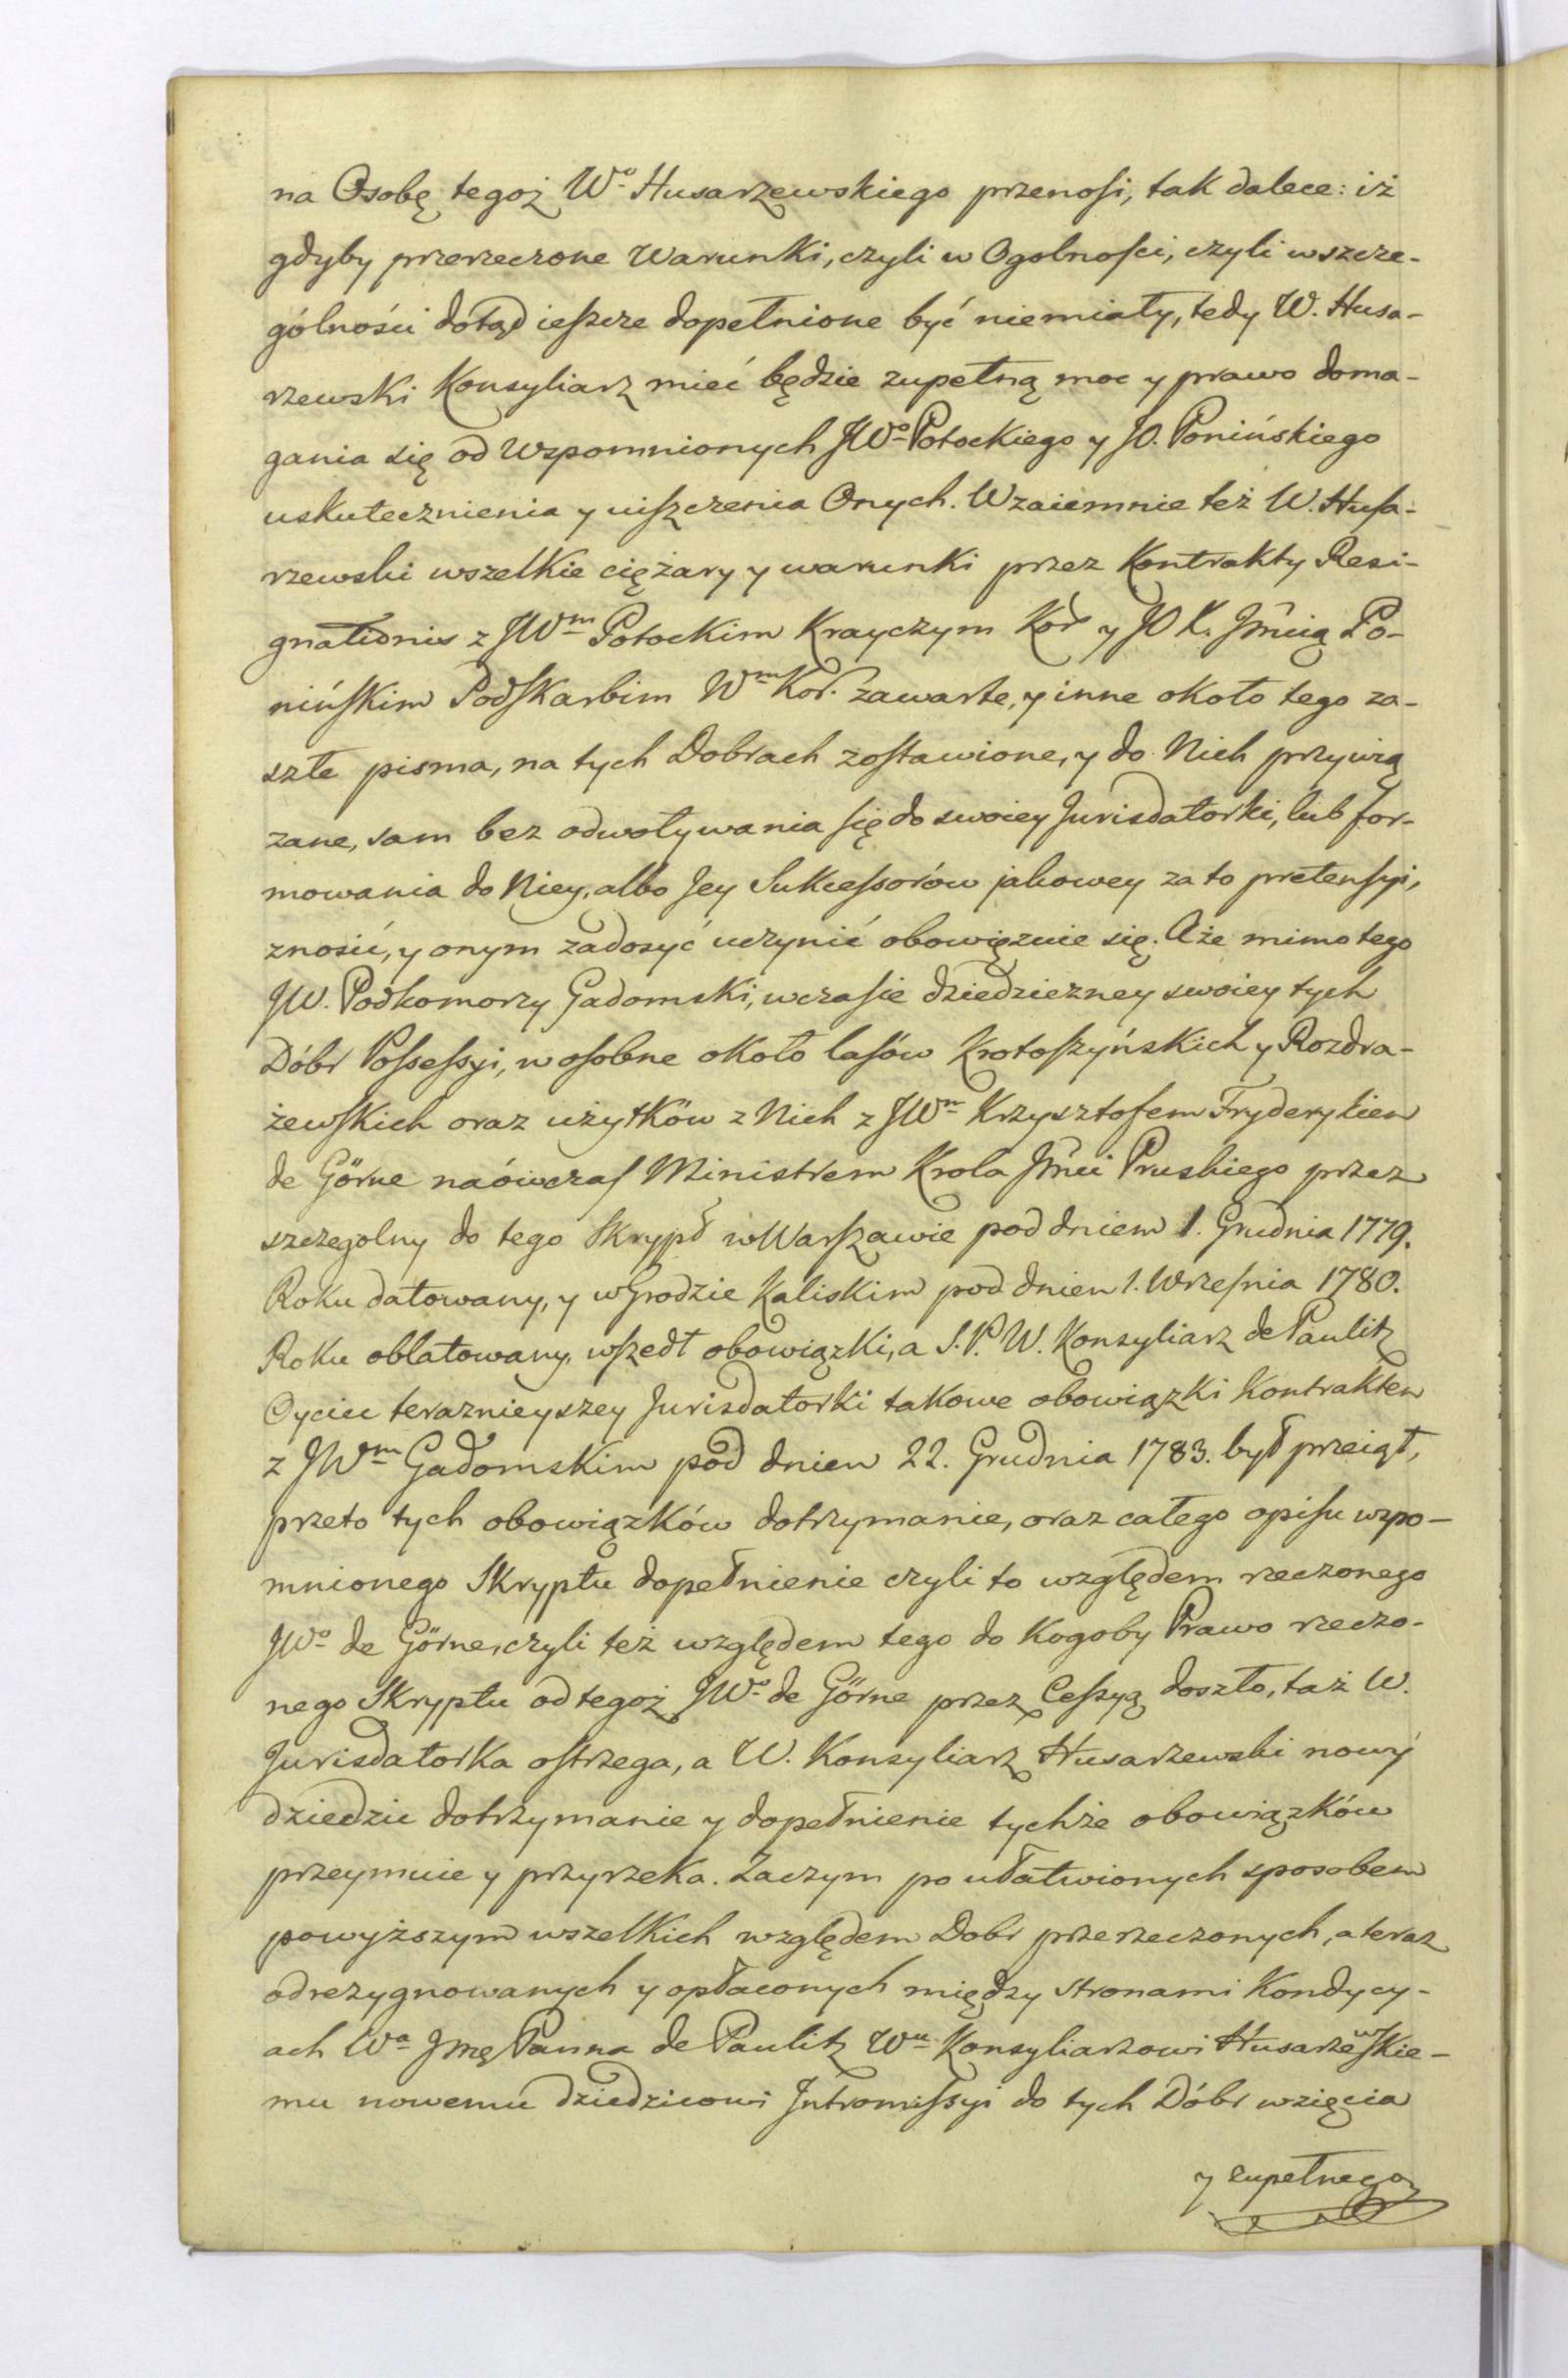 na Osobę tegoż Wº Husarzewskiego przenosi, tak dalece: iż
gdyby przerzeczone Warunki, czyli w Ogolności, czyli w szcze-
gólności dotąd ieszcze dopełnione być niemiały, tedy W. Husa-
rzewski Konsyliarz mieć będzie zupełną moc y prawo doma-
gania się od Wzpomnionych JWº Potockiego y JO. Ponińskiego
uskutecznienia y uiszczenia Onych. Wzaiemnie też W. Husa-
rzewski wszelkie ciężary y warunki przez Kontrakty Resi-
gnationis z JWm Potockim Krayczym Kor y JO X. Jmcią Po-
nińskim Podskarbim Wm Kor. zawarte, y inne około tego za-
szłe pisma, na tych Dobrach zostawione, y do Nich przywią
zane, sam bez odwoływania się do swoiey Jurisdatorki, lub for-
mowania do Niey, albo Jey Sukcessorów jakowey za to pretensyi,
znosić, y onym zadosyć uczynić obowięzuie się. Aże mimo tego
JW. Podkomorzy Gadomski, wczasie dziedziczney swoiey tych
Dóbr Possessyi, w osobne około lasów Krotoszyńskich y Rozdra-
żewskich oraz użytków z Nich z JWm Krzysztofem Fryderykiem
de Görne naówczas Ministrem Krola Jmci Pruskiego przez
szczegolny do tego Skrypt w Warszawie pod dniem 1. Grudnia 1779.
Roku datowany, y w Grodzie Kaliskim pod dniem 1. Wrzesnia 1780.
Roku oblatowany, wszedł obowiązki, a S. P. W. Konsyliarz de Paulitz
Oyciec teraznieyszey Jurisdatorki takowe obowiązki Kontraktem
z JWm Gadomskim pod dniem 22. Grudnia 1783. był przeiął,
przeto tych obowiązków dotrzymanie, oraz całego opisu wzpo-
mnionego Skryptu dopełnienie czyli to względem rzeczonego
JWº de Görne, czyli też względem tego do Kogoby Prawo rzeczo-
nego Skryptu od tegoż JWº de Görne przez Cessyą doszło, taż W.
Jurisdatorka ostrzega, a W. Konsyliarz Husarzewski nowy
dziedzic dotrzymanie y dopełnienie tychże obowiązków
przeymuie y przyrzeka. Zaczym po ułatwionych sposobem
powyższym wszelkich względem Dobr przerzeczonych, a teraz
odrezygnowanych y opłaconych między stronami Kondycy-
ach Wa Jmę Panna de Paulitz Wu Konsyliarzowi Husarzewskie-
mu nowemu dziedzicowi Intromissyi do tych Dóbr wzięcia
y zupełnego